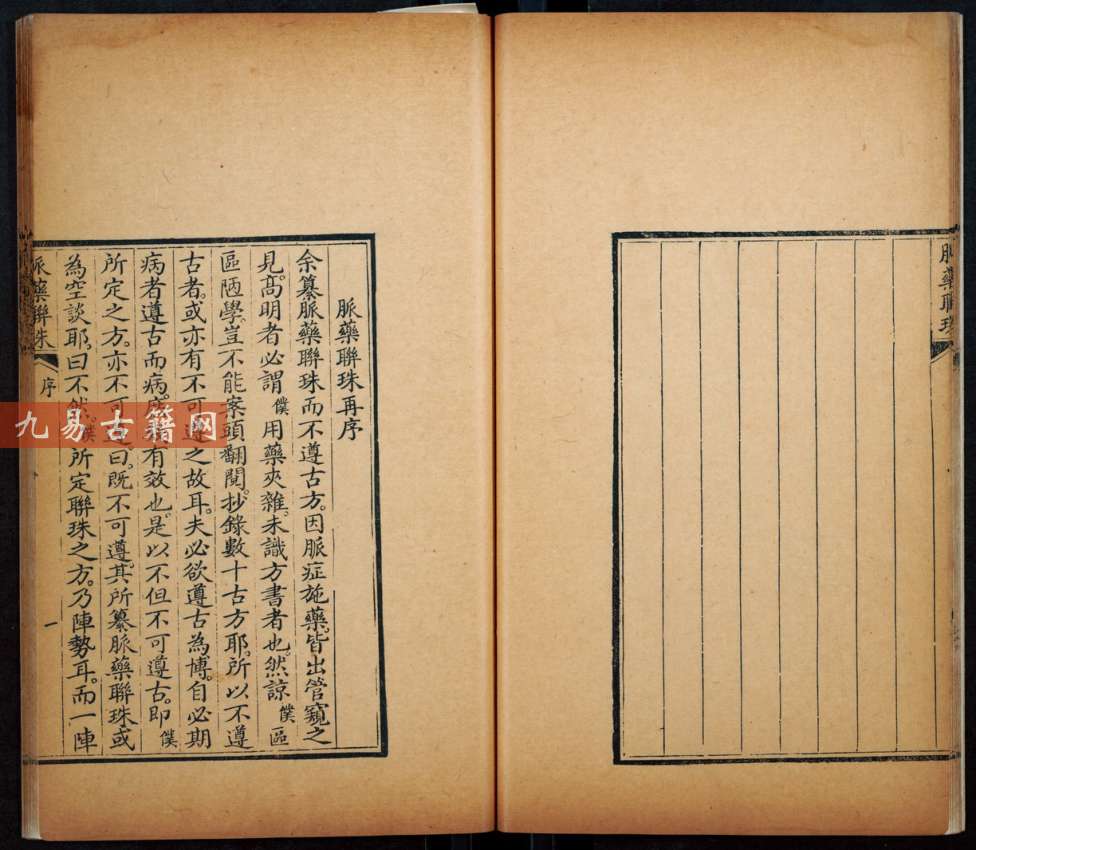 脈藥聯珠
脈藥聯珠再序
余纂脈藥聯珠而不遵古方。因脈症施藥。皆出管窺之
見。高明者必謂僕用藥夾雜。未識方書者也。然諒僕區
區陋學。豈不能案頭翻閱。抄錄數十古方耶。所以不遵
古者。或亦有不可遵之故耳。夫必欲遵古為博。自必期
病者遵古而病。有效也。是以不但不可遵古。即僕
所定之方。亦不可曰。既不可遵。其所纂脈藥聯珠或
為空談耶。曰不然。僕所定聯珠之方。乃陣勢耳。而一陣
脈藥聯珠
序
一
九易古籍网